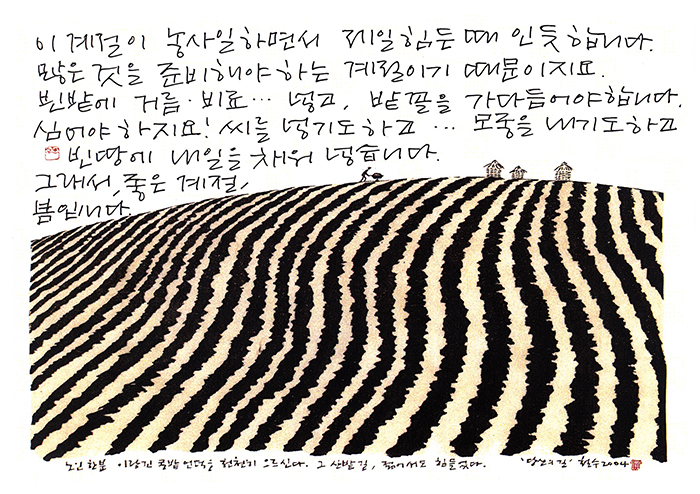 이 계절이 농사일하면서 제일 힘든 때 인듯 합니다.
많은 것을 준비해야 하는 계절이기 때문이지요.
빈밭에 거름·비료… 넣고, 밭 꼴을 가다듬어야 합니다.
심어야 하지요! 씨를 넣기도 하고 … 모종을 내기도 하고
빈 땅에 내일을 채워 넣습니다.
그래서, 좋은 계절,
봄입니다.
노인 한분 이랑진 콩밭 언덕을 천천히 오르신다. 그 산밭 길, 젊어서도 힘들었다. '당신의 길' 철수 2004